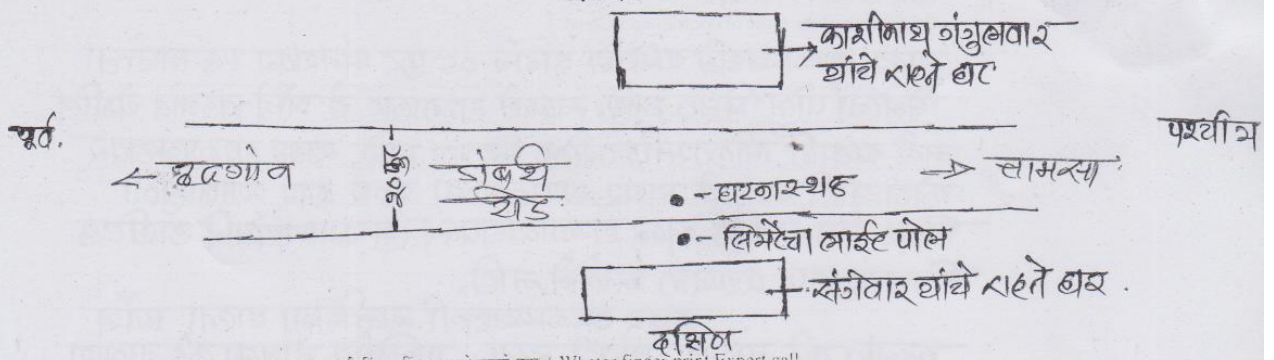 काशीनाथ गंगुलवार
यांचे राहते घर
पुर्व.
पश्चीम
← कुदगाव
२० फुट
डांबरी
रोड
→ चामर्सा
•- घटनास्थळ
•- सिमेंटचा लाईट पोल
संगीवार यांचे राहते घर.
दक्षिण
finger print Expert call